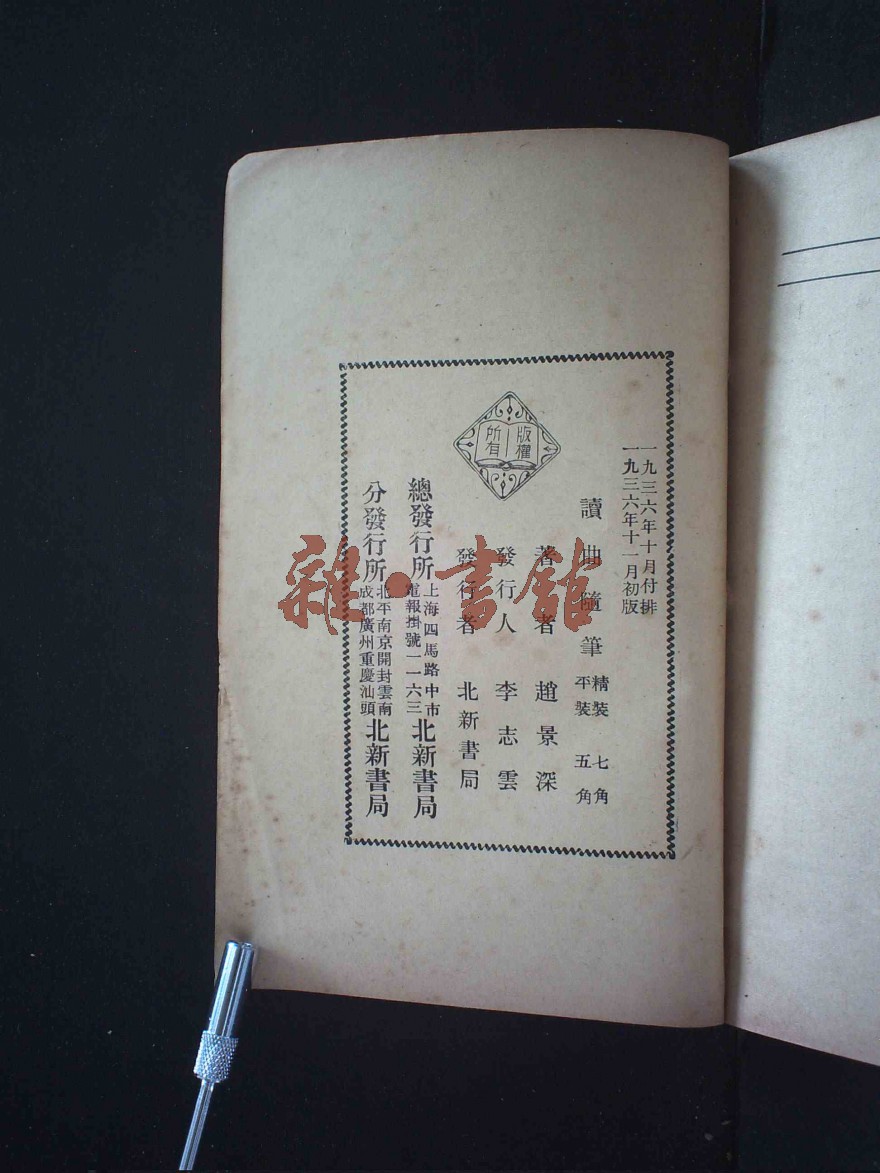 一九三六年十月付排
一九三六年十一月初版
讀曲隨筆
精裝 七角
平裝 五角
著者 趙景深
發行人 李志雲
發行者 北新書局
版權
所有
總發行所
上海四馬路中市
電報掛號一一六三
北新書局
分發行所
北平南京開封雲南
成都廣州重慶汕頭
北新書局
雜·書館